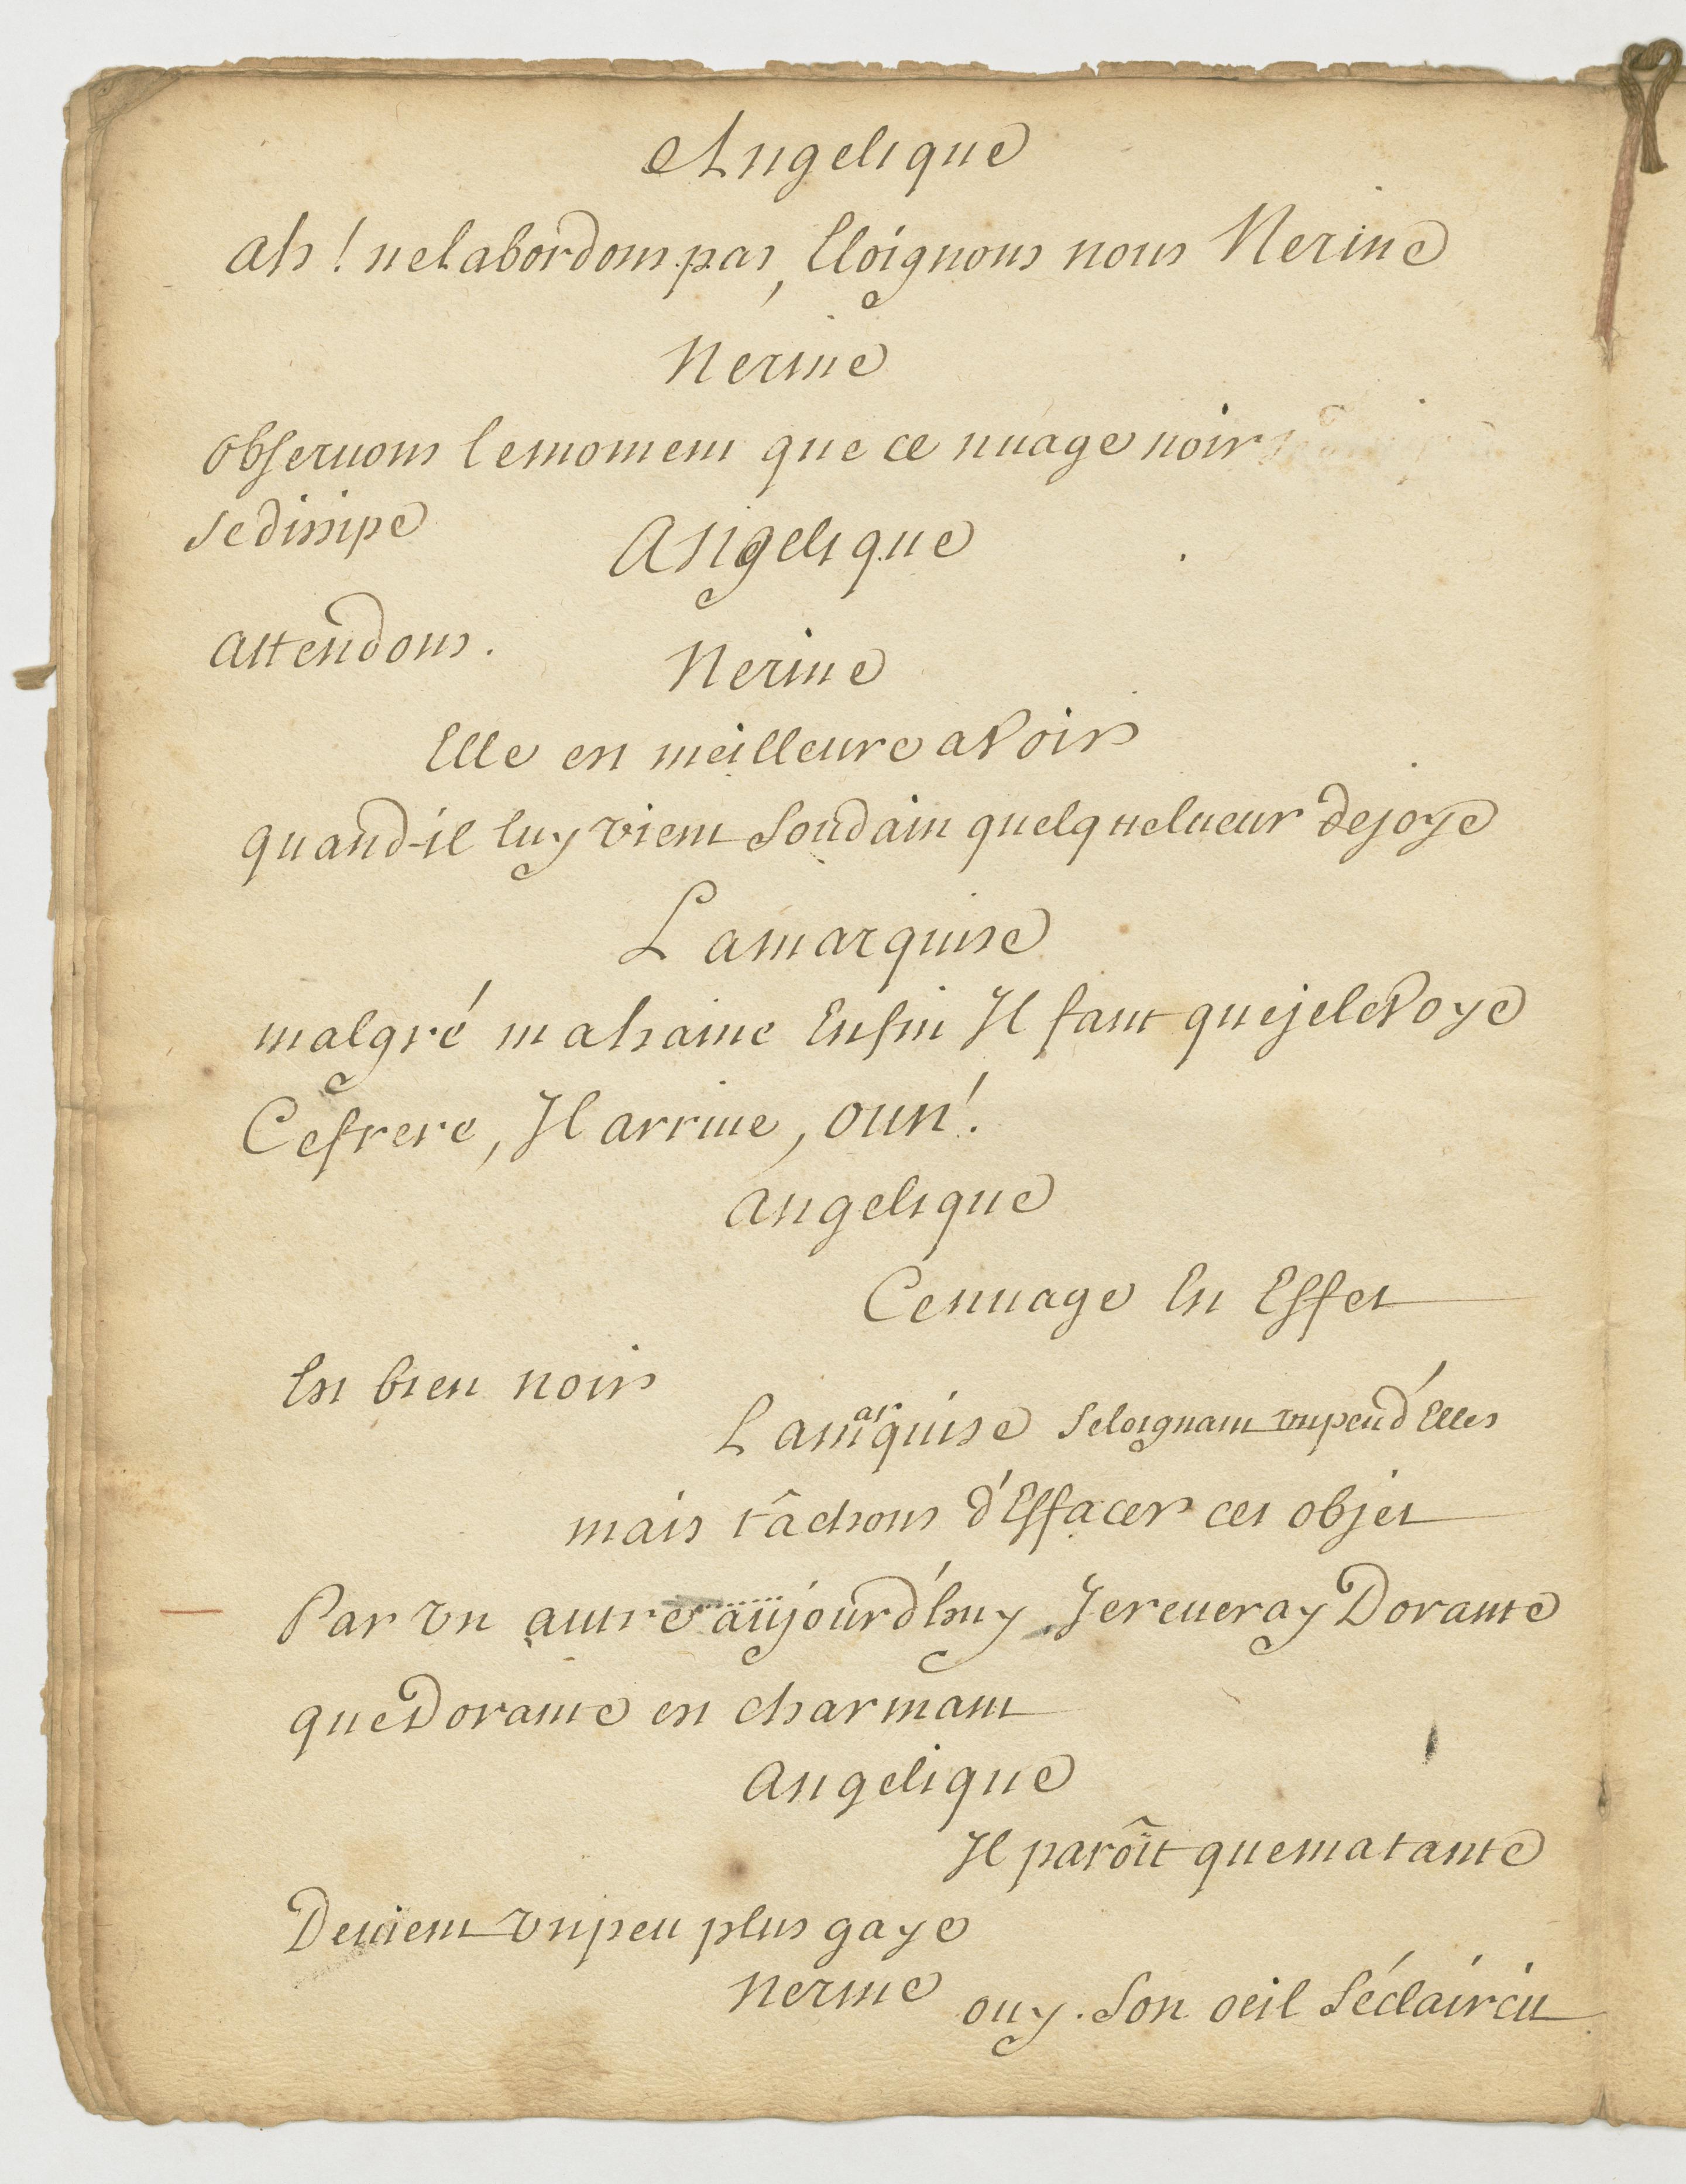 Angelique
ah ! ne labordons pas, Eloignons nous Nerine
Nerine
observons le moment que ce nuage noir
se dissipe
Angelique
attendons.
Nerine
Elle est meilleure a voir
quand-il luy vient soudain quelque lueur de joye
La marquise
malgré ma haine Enfin Il faut que je le voye
Ce frere, Il arrive,
angelique
Ce nuage En Effet
Est bien noir
La marquise s'eloignant un peu d'Elles
mais tâchons d'Effacer cet objet
Par un autre aujourd'huy Je reveray Dorante
que Dorante est charmant
angelique
Il parôit que ma tante
Devient un peu plus gaye
Nerine
ouy. son oeil s'éclaircit